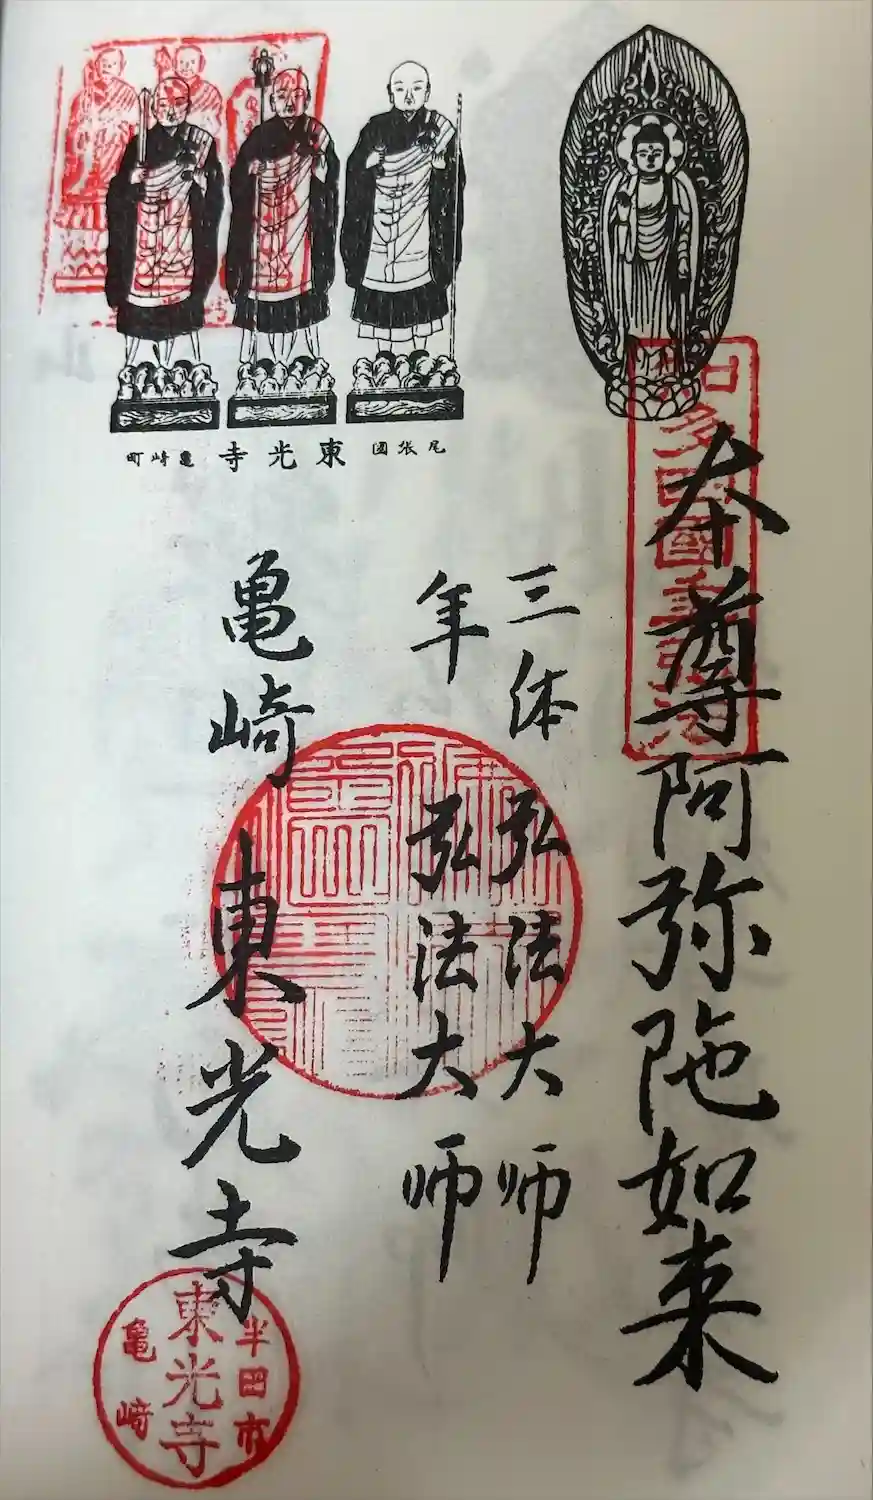 本尊阿弥陀如来
三体弘法大师
年弘法大师
亀崎東光寺
尾張國東光寺亀崎町
半田市
東光寺
亀崎